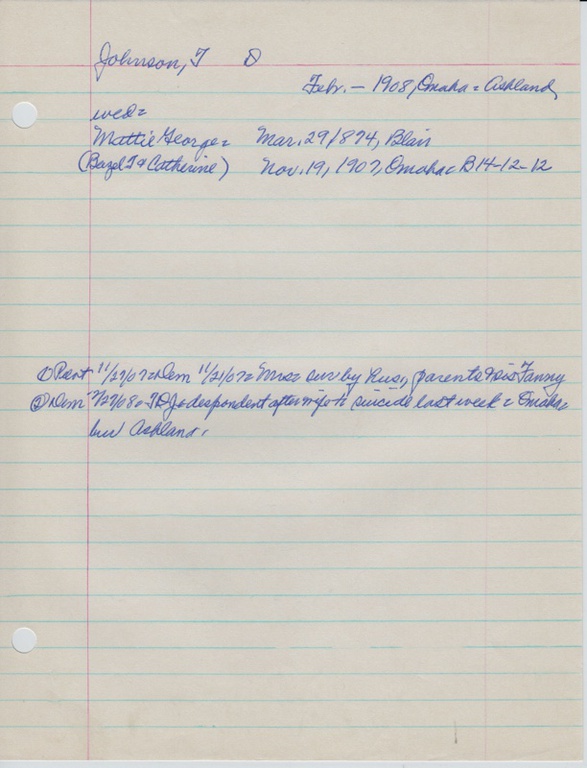 Johnson, T D
Febr. — 1908, Omaha = Ashland,
wed =
Mattie George = Mar. 29/874, Blair
(Bazel T & Catherine) Nov. 19, 1907, Omaha = B14-12-12
① 11/27/07 = Dem 11/21/07 = Mrs = sur by hus, parents & sis Fanny
② Dem 2/27/08 = T D J = despondent after wife suicide last week = Omaha =
bur Ashland.